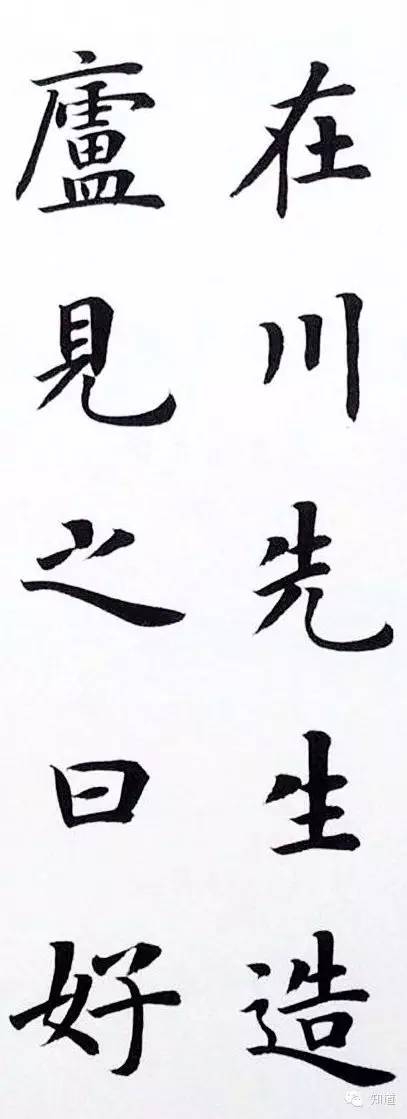 在川先生造
廬見之曰好
知道